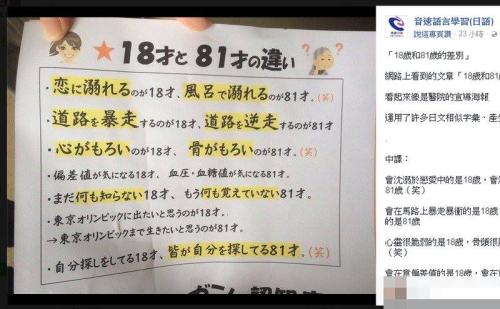 ★18才と81才の違い
・恋に溺れるのが18才、風呂で溺れるのが81才。(笑)
・道路を暴走するのが18才、道路を逆走するのが81才。
・心がもろいのが18才、骨がもろいのが81才。(笑)
・偏差値が気になる18才、血圧・血糖値が気になる81才。
・まだ何も知らない18才、もう何も覚えていない81才。
・東京オリンピックに出たいと思うのが18才、
→東京オリンピックまで生きたいと思うのが81才。
・自分探しをしてる18才、皆が自分を探してる81才。(笑)
音速語言學習(日語)
說這專頁讚
23 小時
「18歲和81歲的差別」
網路上看到的文章「18歲和8
看起來像是醫院的宣導海報
運用了許多日文相似字彙，產生
.
中譯：
會沈溺於戀愛中的是18歲，會
81歲（笑）
會在馬路上暴走暴衝的是18歲，
的是81歲
心靈很脆弱的是18歲，骨頭很
（笑）
會在意偏差值的是18歲，會在